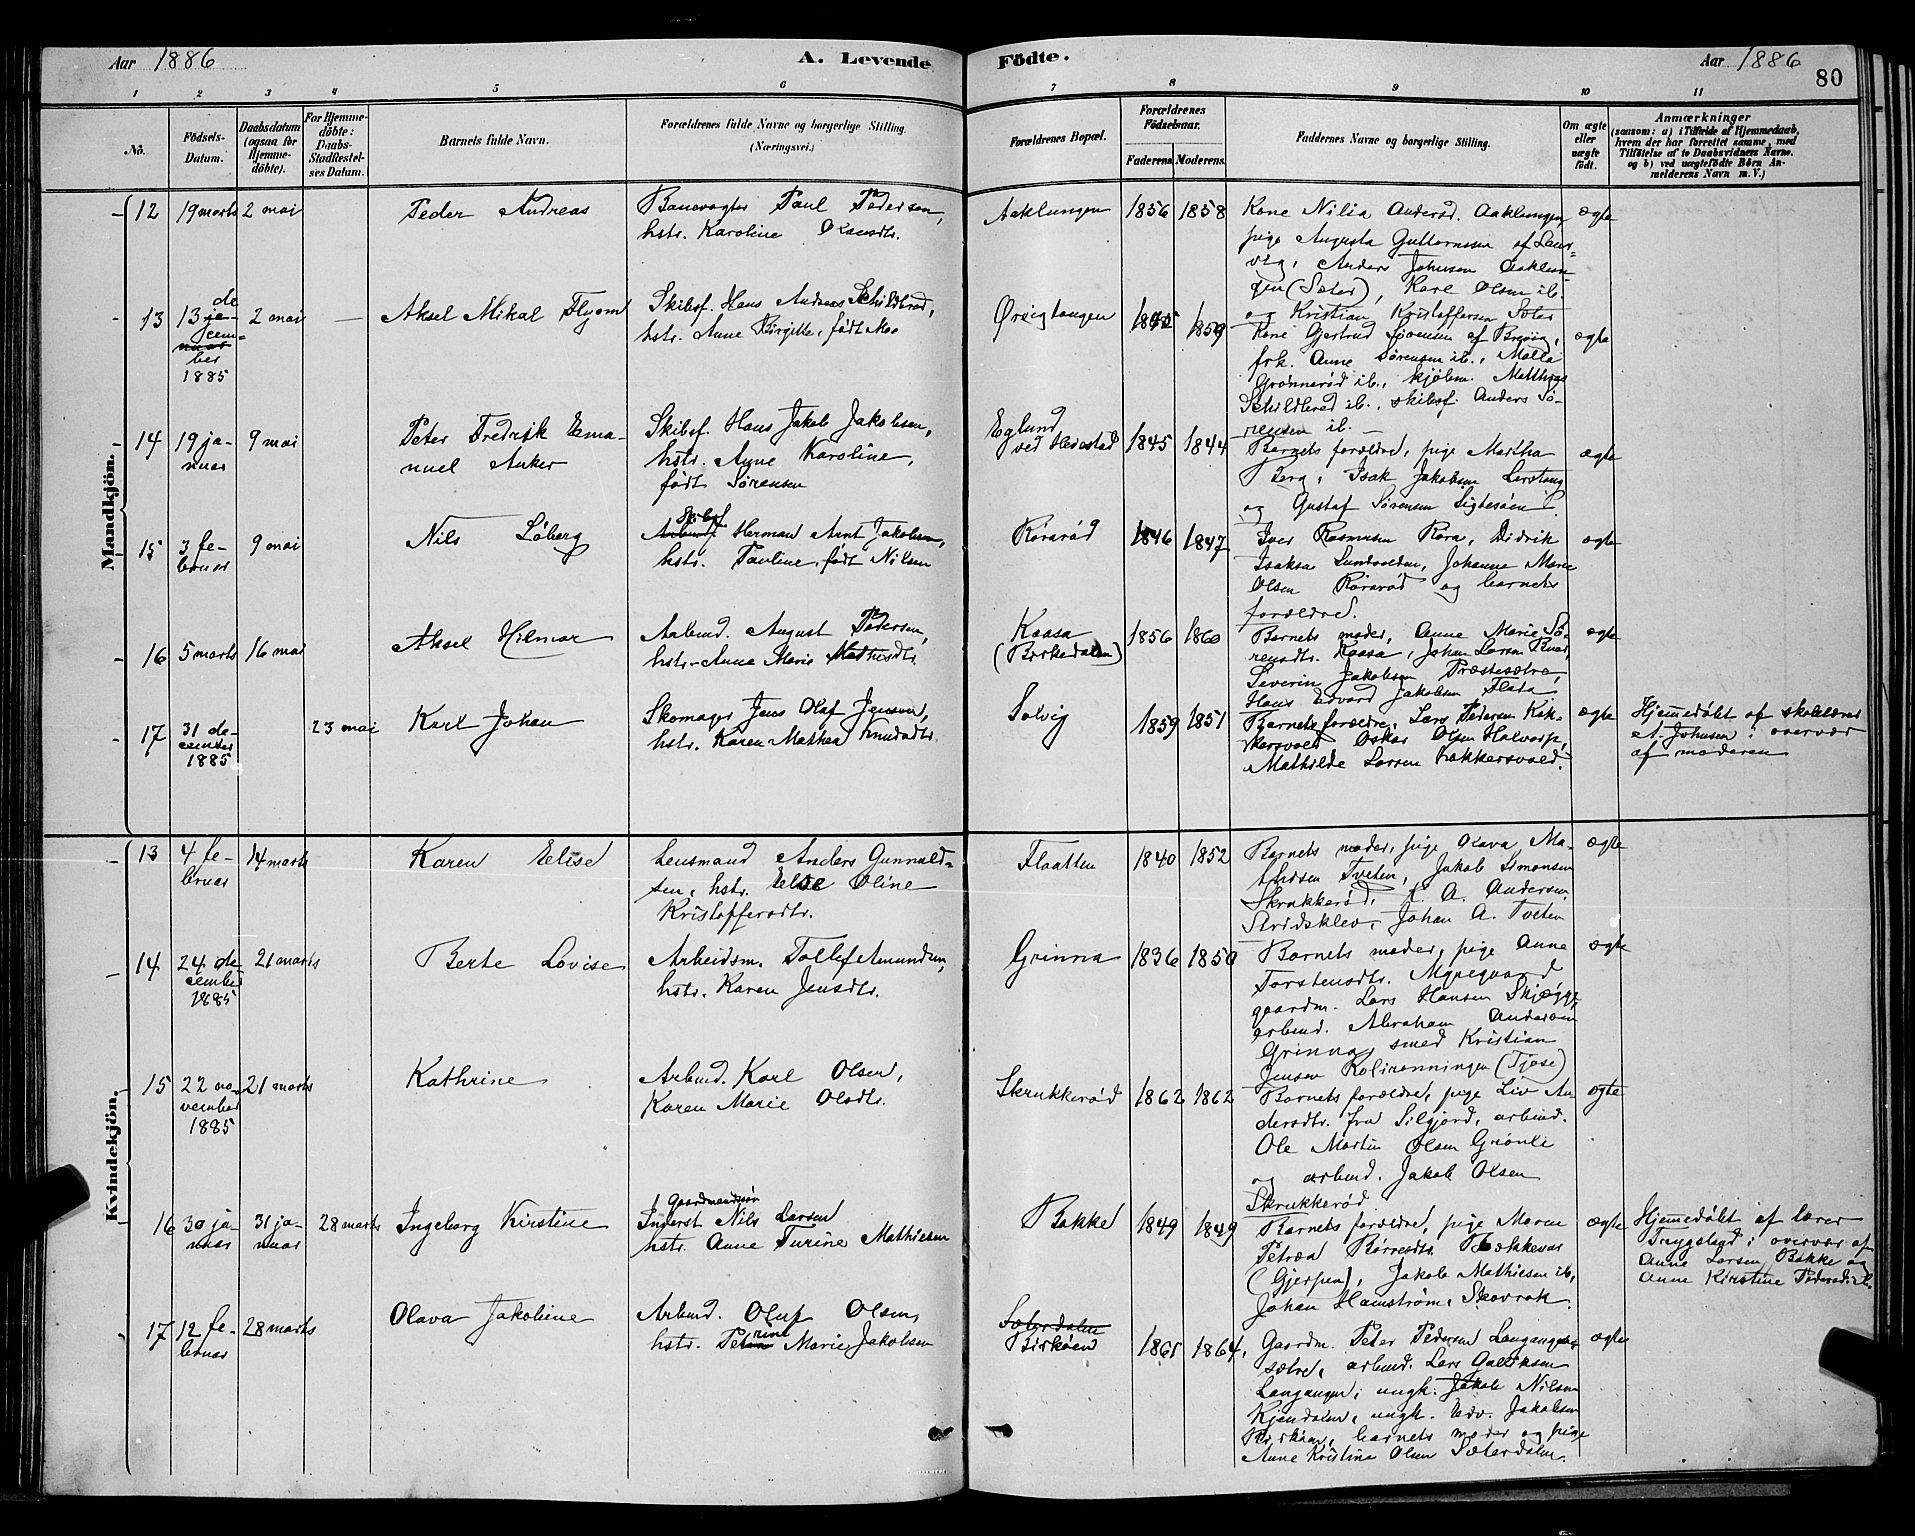 Aar 1886
A. Levende
Födte.
Aar 1886
80
1 2 3 4 5 6 7 8 9 10 11
No.
Födsels-
Datum.
Daabsdatum
(ogsaa for
Hjemme-
döbte).
For Hjemme-
döbte:
Daabs-
Stadfæstel-
ses Datum.
Barnets fulde Navn.
Forældrenes fulde Navne og borgerlige Stilling.
(Næringsvei.)
Forældrenes Bopæl.
Forældrenes
Födselsaar.
Faderens. Moderens.
Faddernes Navne og borgerlige Stilling.
Om ægte
eller
uægte
født.
Anmærkninger
(saasom: a) i Tilfælde af Hjemmedaab,
hvem der har forrettet samme, med
Tilföielse af to Daabsvidners Navne.
og b) ved uægtefödte Börn An-
melderens Navn m. V.)
Mandkjön.
12 19 marts 2 mai
Peder Andreas
Banevogter Paul Pedersen,
hstr. Karoline Olausdtr.
Aaklungen 1856 1858
Kone Nilia Anderød. Aaklungen,
pige Augusta Guttormsen af Laur-
vig, Anders Johnsen Aaklun-
gen (Sæter), Karl Olsen ib.
og Kristian Kristoffersen Sæter
ægte
13 13 de-
cem-
ber
1885
2 mai —
Aksel Mikal Thom
Skibsf. Hans Andreas Schildbred,
hstr. Anne Birgitte, født Moe
Ørvigtangen 1859
Kone Gjertrud Sørensen af Brevig,
frk. Anne Sørensen ib., Malla
Grønnerød ib., kjøbm. Matthias
Schildbred ib., skibsf. Anders Sø-
rensen ib. —
ægte
14 19 ja-
nuar
9 mai
Peter Fredrik Ema-
nuel Anker
Skibsf. Hans Jakob Jakobsen,
hstr. Anne Karoline,
født Sørensen
Eglund
ved Heistad
1845 1844
Barnets forældre, pige Martha
Berg, Isak Jakobsen Lerstang
og Gustaf Sørensen Sigtesøen
ægte
15 3 fe-
bruar
9 mai
Nils Löberg
Skibsf.
Arbmd. Herman Arnt Jakobsen,
hstr. Pauline, født Nilsen
Rørarød 1846 1847
Iver Rasmusen Røra, Didrik
Isaksen Lundvolden, Johanne Marie
Olsen Rørarød og barnets
forældre.
ægte
16 5 marts 16 mai
Aksel Hilmar
Arbmd. August Pedersen,
hstr. Anne Marie Mathisdtr.
Kaasa
(Birkedalen)
1856 1860
Barnets moder, Anne Marie Sø-
rensdtr. Kaasa, Johan Larsen
Severin Jakobsen Præstesætre,
Hans Edvard Jakobsen Flata
ægte
17 31 de-
cember
1885
23 mai
Karl Johan
Skomager Jens Olaf Jensen,
hstr. Karen Mathea Knudsdtr.
Solvig 1859 1851
Barnets forældre, Lars Pedersen Kok-
kersvold Oskar Olsen Halvarp,
Mathilde Larsen Kokkersvold.
ægte
Hjemmedøbt af skolelærer
A. Johnsen i overvær
af moderen
Kvindekjön.
13 4 fe-
bruar
14 marts
Karen Elise
Lensmand Anders Gunnuld-
sen, hstr. Else Oline
Kristoffersdtr.
Flaatten 1840 1852
Barnets moder, pige Olava Ma-
thisen Tveten, Jakob Simonsen
Skrukkerød, A. Andersen
Stridsklev, Johan A. Tveten
ægte
14 24 de-
cember
1885
21 marts
Berte Lovise
Arbeidsm. Tollef Amundsen,
hstr. Karen Jensdtr.
Grinna 1836 1850
Barnets moder, pige Anne
Torstensdtr. Myregaard
gaardm. Lars Hansen
arbmd. Abraham Andersen
Grinna, smed Kristian
Jensen Kolirønningen (Tjøse)
ægte
15 22 no-
vember
1885
21 marts
Kathrine
Arbmd. Karl Olsen,
Karen Marie Olsdtr.
Skrukkerød 1862 1862
Barnets forældre, pige Liv An-
dersdtr. fra Silgjord, arbmd.
Ole Martin Olsen Grønli
og arbmd. Jakob Olsen
Skrukkerød.
ægte
16 30 ja-
nuar
31 ja-
nuar
28 marts
Ingeborg Kirstine
Gaardmandssøn
Inderst Nils Larsen
hstr. Anne Turine Mathiesen
Bakke 1849 1849
Barnets forældre, pige Maren
Petræa Børresdtr. Bækkevar
(Gjerpen), Jakob Mathiesen ib,
Johan Hamstrøm, Skavrak.
ægte
Hjemmedøbt af lærer
Trygstad i overvær af
Anne Larsen Bakke og
Anne Kirstine Pedersdtr ib.
17 12 fe-
bruar
28 marts
Olava Jakobine
Arbmd. Oluf Olsen,
hstr. Petrine Marie Jakobsen
Sæterdalen
Birkøen
1861 1864
Gaardm. Peter Pedersen Langangen-
sætre, arbmd. Lars Gulliksen
Langangen, ungk. Jakob Nilsen
Kjendalen, ungk. Edv. Jakobsen
Birkøen, barnets moder og pige
Anne Kristine Olsen Sæterdalen.
ægte